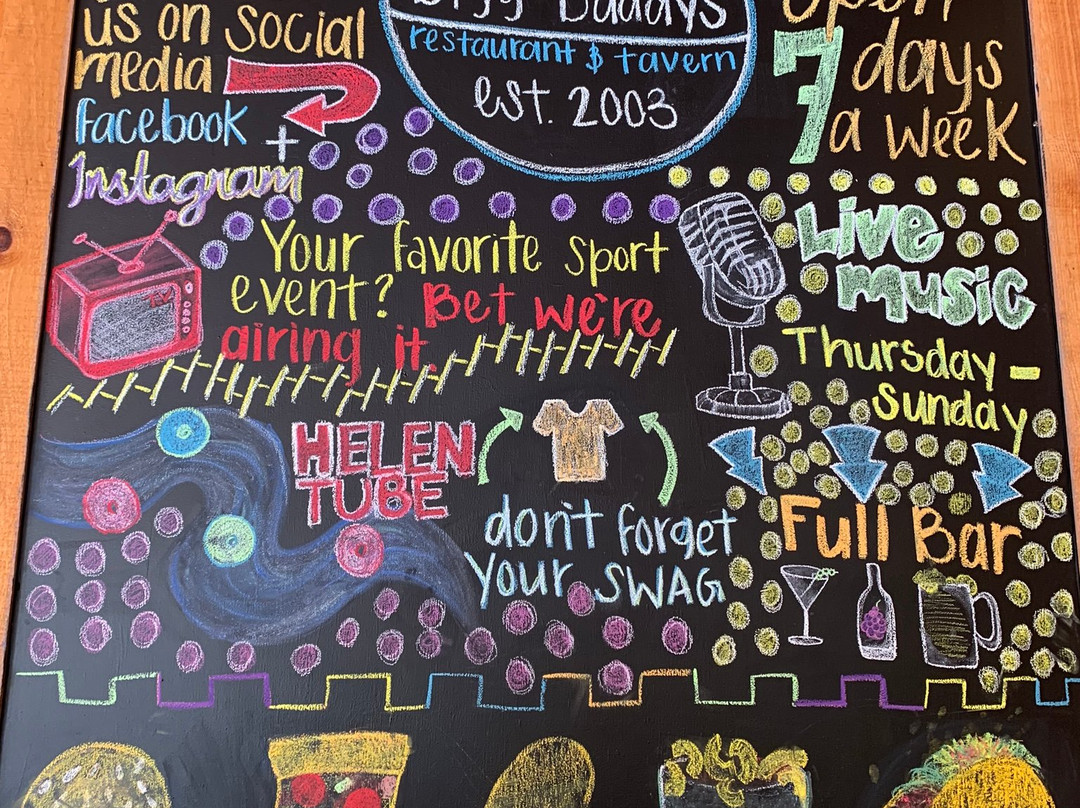 us on social
media
facebook +
Instagram
Bigg Daddys
restaurant & tavern
est. 2003
Open
7 days
a week
Your favorite sport
event? Bet we're
airing it
TV
Live
music
Thursday -
Sunday
HELEN
TUBE
don't forget
your SWAG
Full Bar